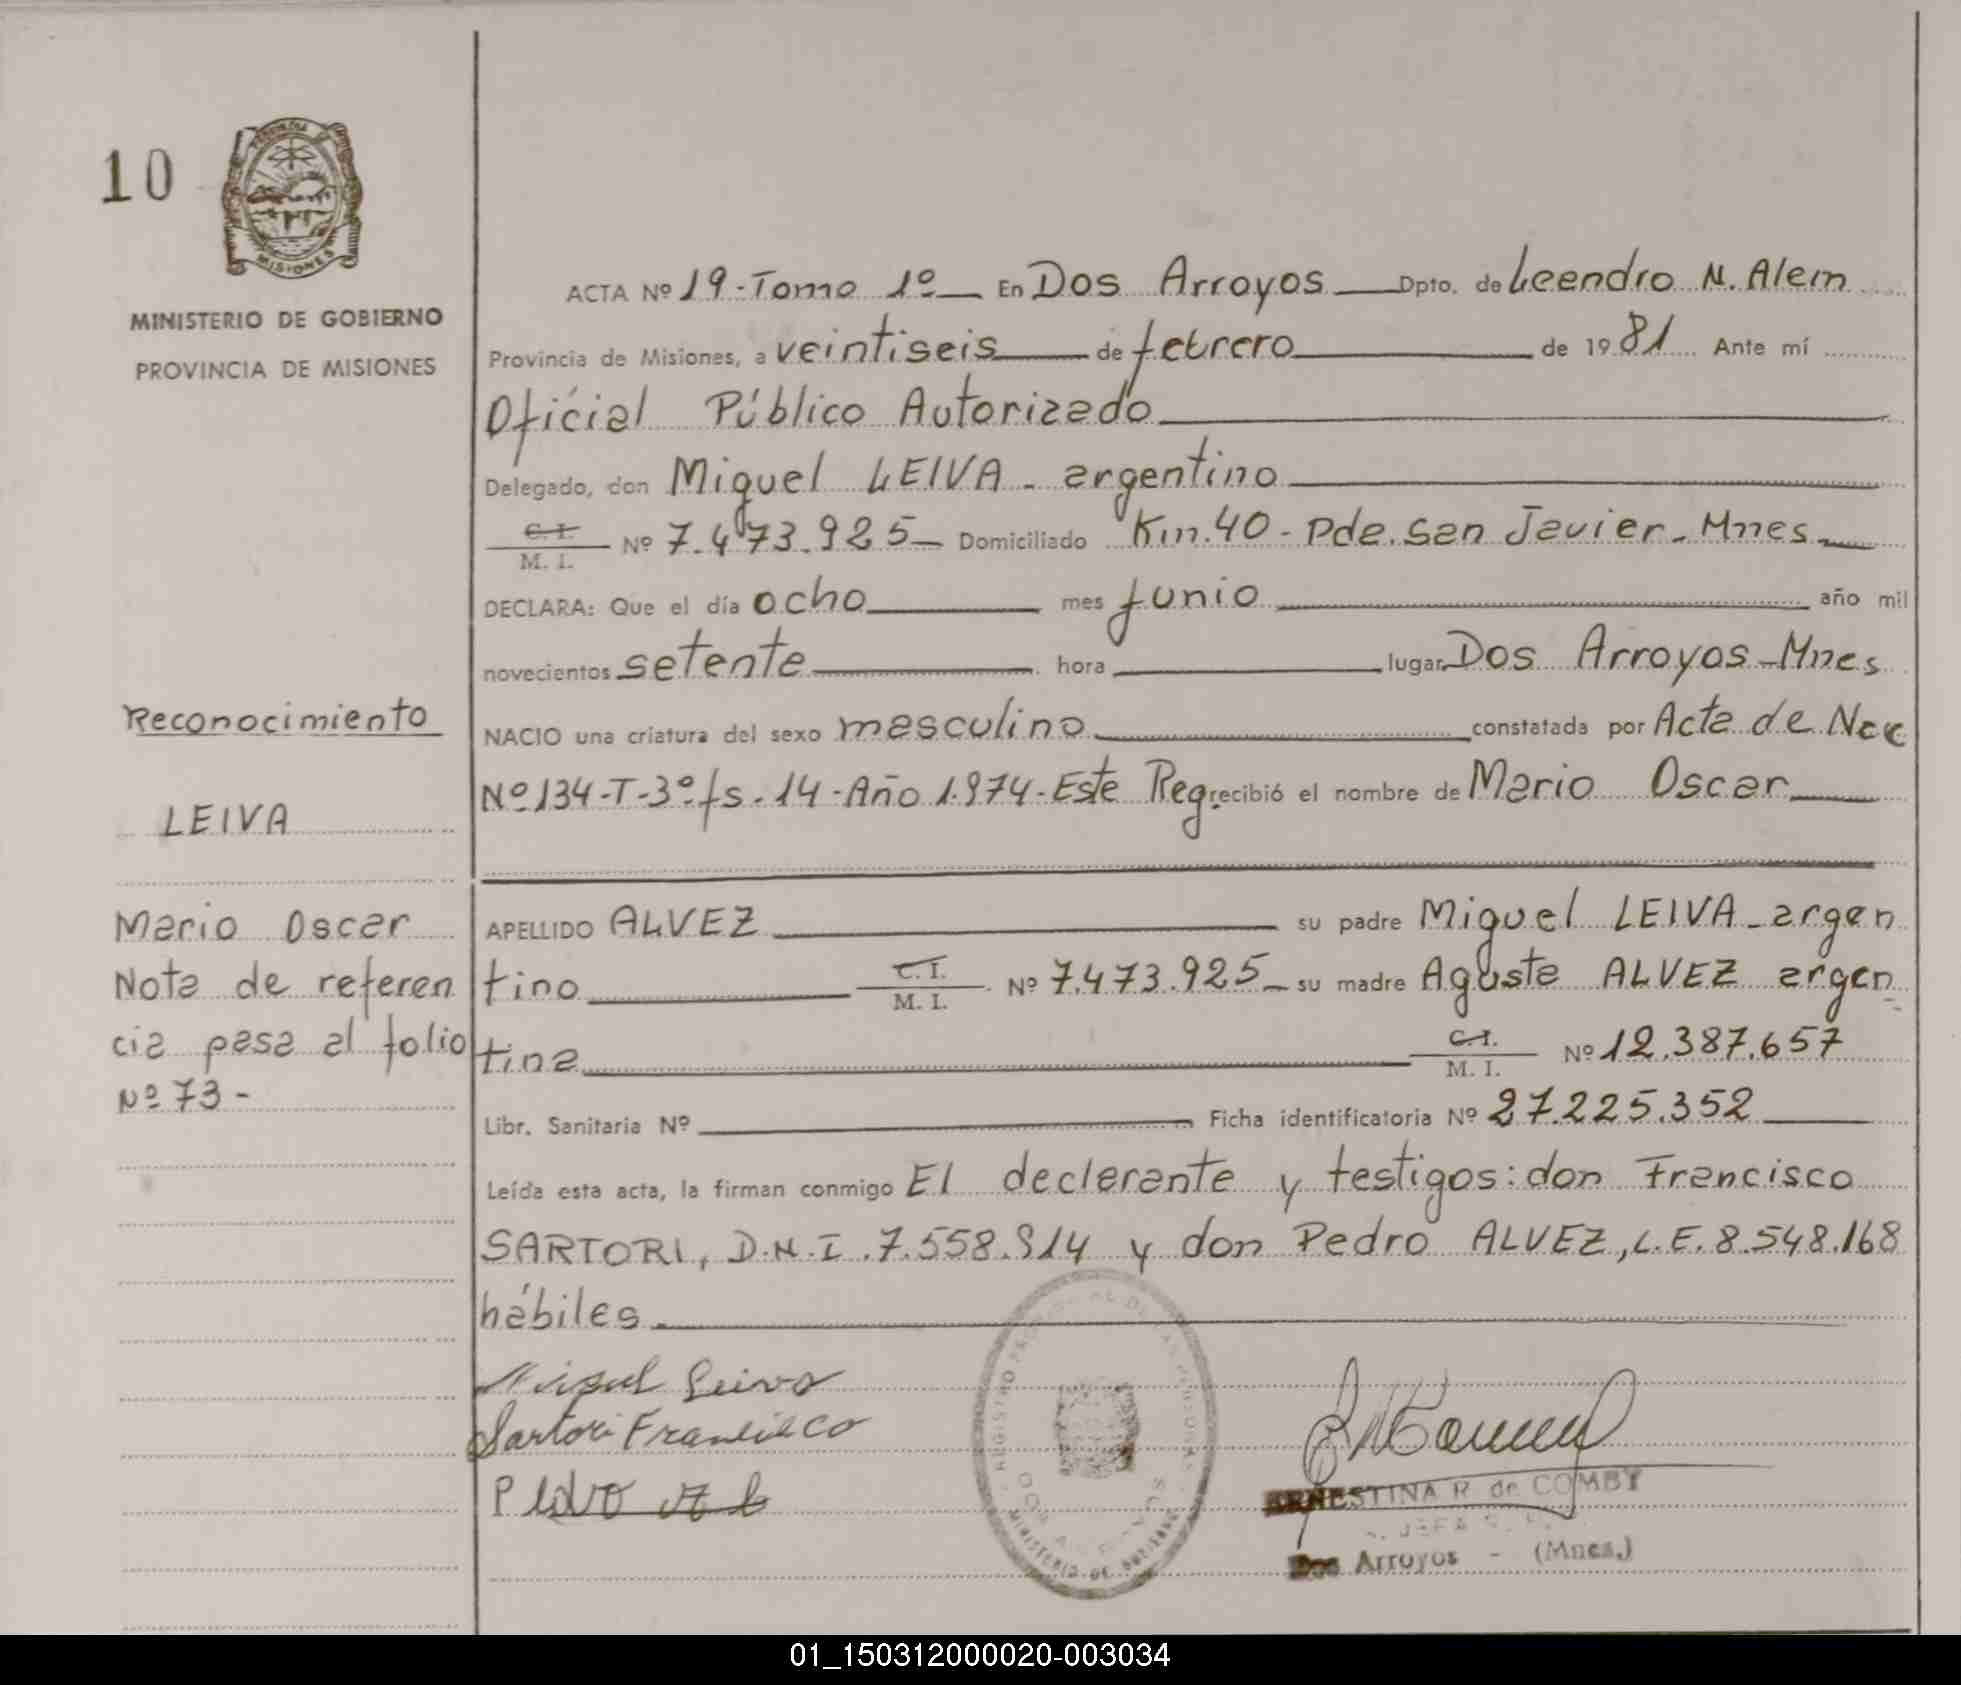 10
PROVINCIA DE
MISIONES
MINISTERIO DE GOBIERNO
PROVINCIA DE MISIONES
ACTA Nº 19-Tomo 1º En Dos Arroyos Dpto. de Leandro N. Alem
Provincia de Misiones, a veintiseis de febrero de 1981 Ante mí
Oficial Público Autorizado
Delegado, don Miguel LEIVA - argentino
C. I.
M. I. Nº 7.473.925 Domiciliado Km. 40 - Pde. San Javier - Mnes
DECLARA: Que el día ocho mes junio año mil
novecientos setenta hora lugar Dos Arroyos - Mnes
NACIO una criatura del sexo masculino constatada por Acta de Nac
Nº 134-T-3º fs. 14 - Año 1.974 - Este Reg. recibió el nombre de Mario Oscar
APELLIDO ALVEZ su padre Miguel LEIVA - argen
tino C. I.
M. I. Nº 7.473.925 su madre Agusta ALVEZ argen
tina C. I.
M. I. Nº 12.387.657
Libr. Sanitaria Nº Ficha identificatoria Nº 27.225.352
Leída esta acta, la firman conmigo El declarante y testigos: don Francisco
SARTORI, D.N.I. 7.558.914 y don Pedro ALVEZ, L.E. 8.548.168
hábiles
Reconocimiento
LEIVA
Mario Oscar
Nota de referen
cia pasa al folio
Nº 73 -
Miguel Leiva
Sartori Francisco
Pedro
MINISTERIO DE GOBIERNO
ERNESTINA R. de COMBY
JEFA
Dos Arroyos - (Mnes.)
01_150312000020-003034